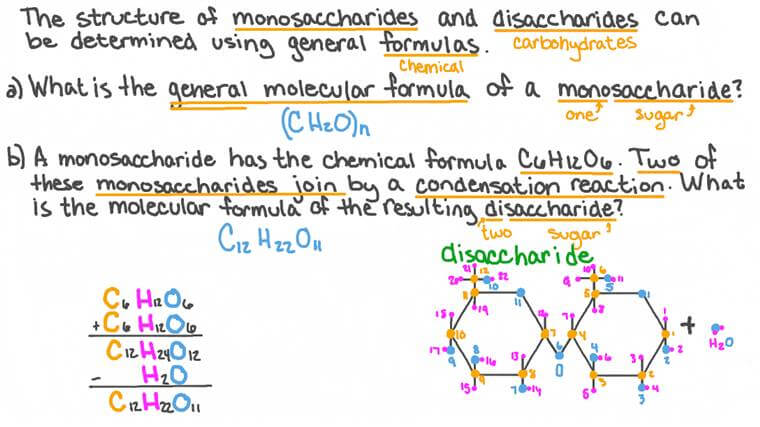 The structure of monosaccharides and disaccharides can
be determined using general formulas. carbohydrates
chemical
a) What is the general molecular formula of a monosaccharide?
(CH₂O)n one sugar
b) A monosaccharide has the chemical formula C₆H₁₂O₆. Two of
these monosaccharides join by a condensation reaction. What
is the molecular formula of the resulting disaccharide?
C₁₂H₂₂O₁₁ two sugar
disaccharide
C₆H₁₂O₆
+ C₆H₁₂O₆
C₁₂H₂₄O₁₂
- H₂O
C₁₂H₂₂O₁₁
O
+
H₂O